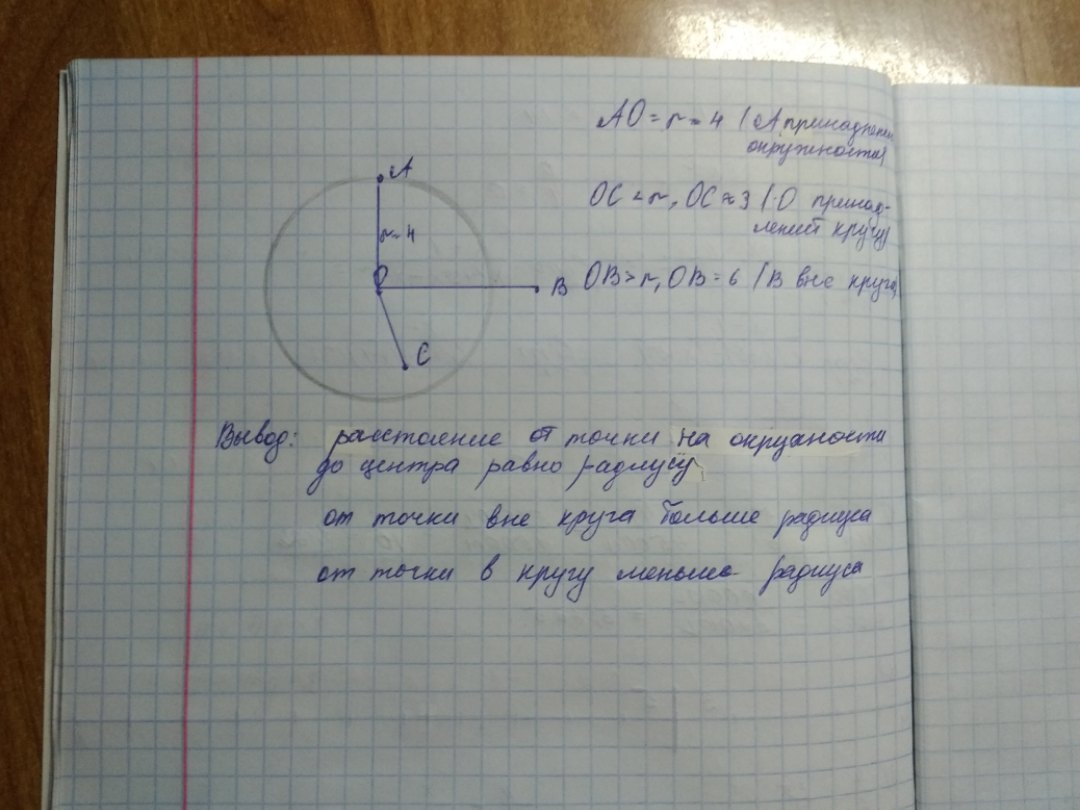 AO = r = 4 (A принадлежит
окружности)
A
OC < r, OC ≈ 3 (·O принад-
лежит кругу)
r = 4
O
B
OB > r, OB = 6 (B вне круга)
C
Вывод: расстояние от точки на окружности
до центра равно радиусу
от точки вне круга больше радиуса
от точки в кругу меньше радиуса